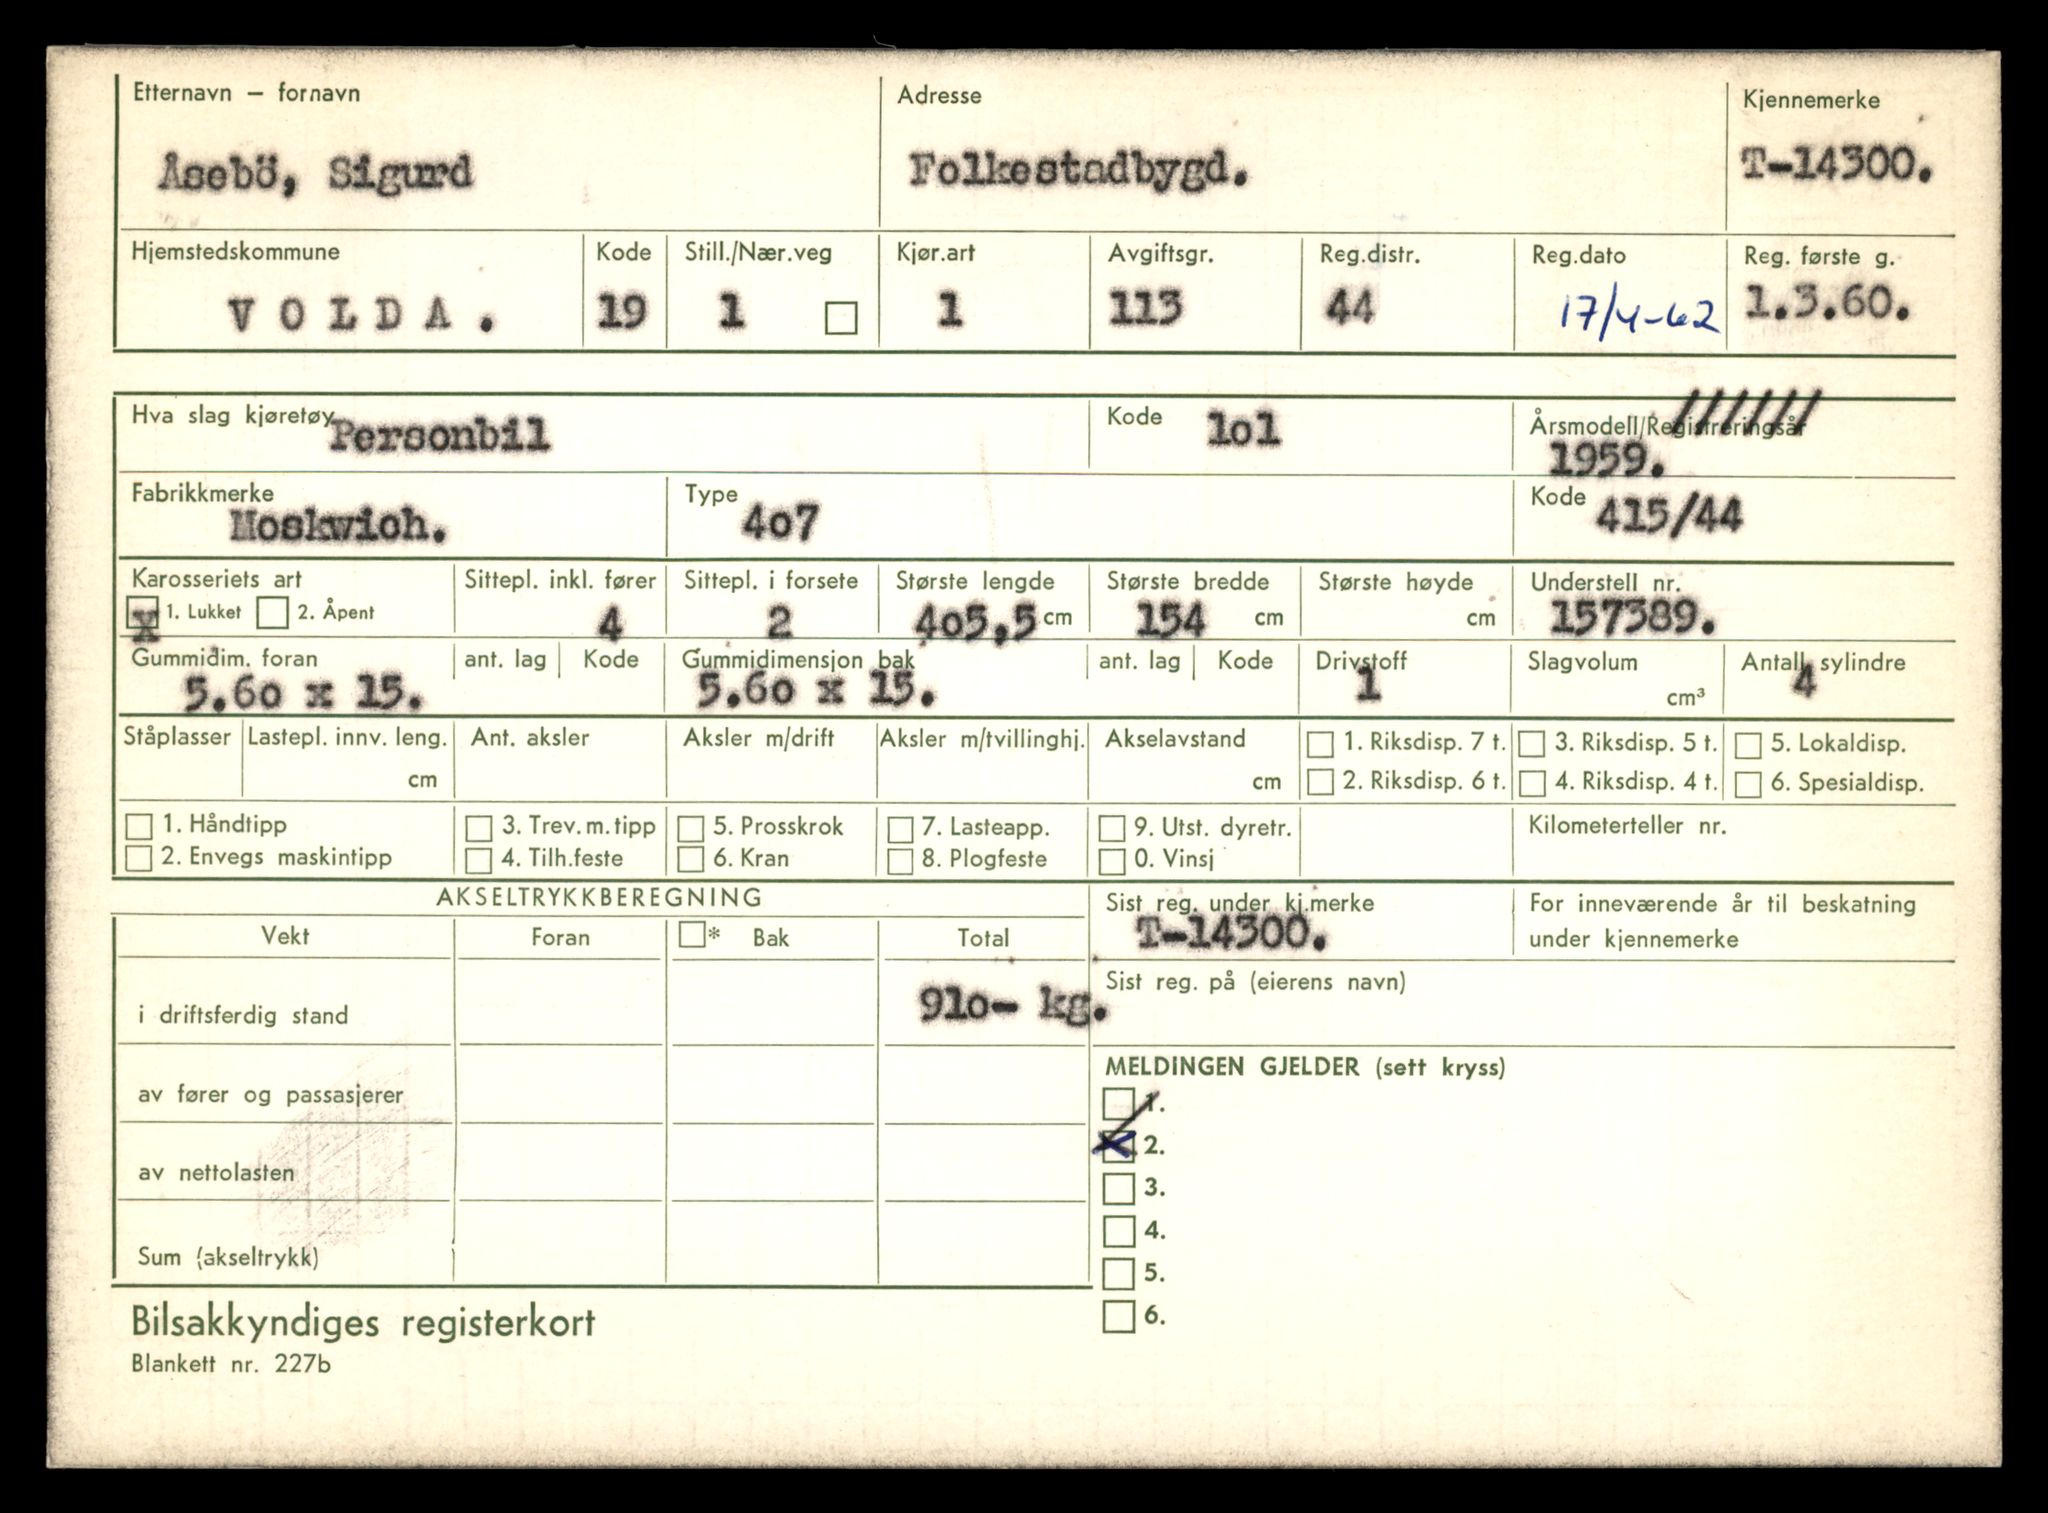 Etternavn – fornavn Adresse Kjennemerke
Åsebö, Sigurd Folkestadbygd. T-14300.
Hjemstedskommune Kode Still./Nær.veg Kjør.art Avgiftsgr. Reg.distr. Reg.dato Reg. første g.
VOLDA. 19 1 1 113 44 17/4-62 1.3.60.
Hva slag kjøretøy Personbil Kode 1o1 Årsmodell/Registreringsår //////
1959.
Fabrikkmerke Type Kode
Moskvich. 4o7 415/44
Karosseriets art Sittepl. inkl. fører Sittepl. i forsete Største lengde Største bredde Største høyde Understell nr.
x 1. Lukket 2. Åpent 4 2 4o5,5 cm 154 cm cm 157389.
Gummidim. foran ant. lag Kode Gummidimensjon bak ant. lag Kode Drivstoff Slagvolum Antall sylindre
5.6o x 15. 5.6o x 15. 1 cm³ 4
Ståplasser Lastepl. innv. leng. Ant. aksler Aksler m/drift Aksler m/tvillinghj. Akselavstand 1. Riksdisp. 7 t. 3. Riksdisp. 5 t. 5. Lokaldisp.
cm cm 2. Riksdisp. 6 t. 4. Riksdisp. 4 t. 6. Spesialdisp.
1. Håndtipp 3. Trev. m. tipp 5. Prosskrok 7. Lasteapp. 9. Utst. dyretr. Kilometerteller nr.
2. Envegs maskintipp 4. Tilh.feste 6. Kran 8. Plogfeste 0. Vinsj
AKSELTRYKKBEREGNING Sist reg. under kj.merke For inneværende år til beskatning
Vekt Foran * Bak Total T-14300. under kjennemerke
Sist reg. på (eierens navn)
i driftsferdig stand 91o- kg.
MELDINGEN GJELDER (sett kryss)
av fører og passasjerer 1.
x 2.
av nettolasten 3.
4.
Sum (akseltrykk) 5.
6.
Bilsakkyndiges registerkort
Blankett nr. 227b